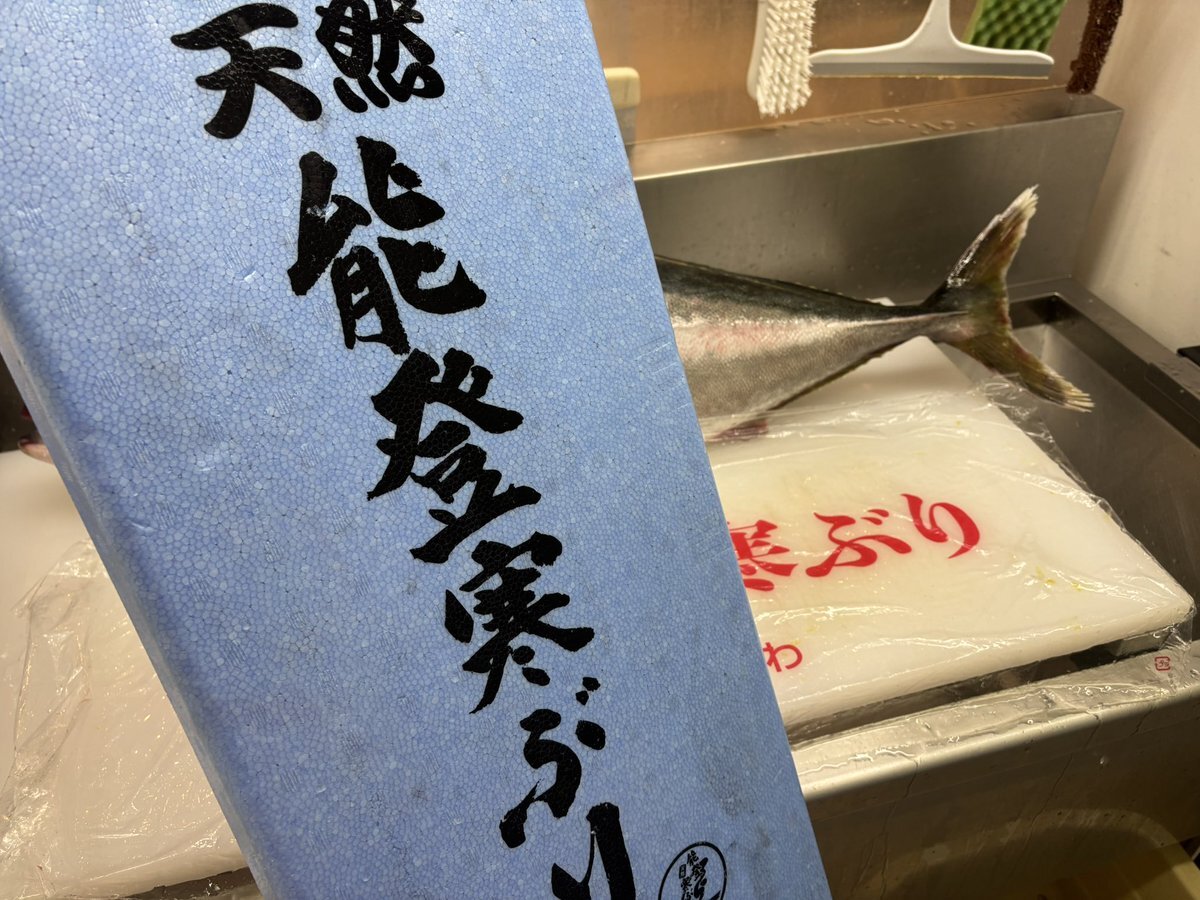 天然
能登寒ぶり
寒ぶり
わ